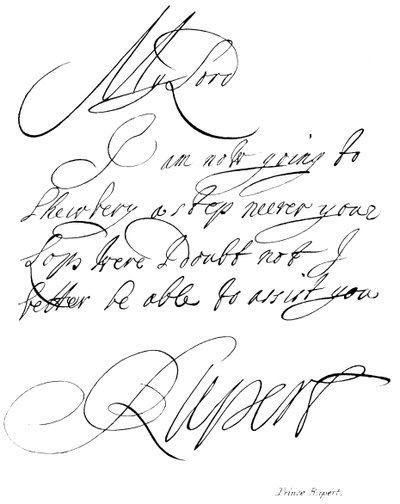 My Lord
I am now going to
Shewbery a step neerer your
Lops were I doubt not I
better be able to assist you
Rupert
Prince Rupert.